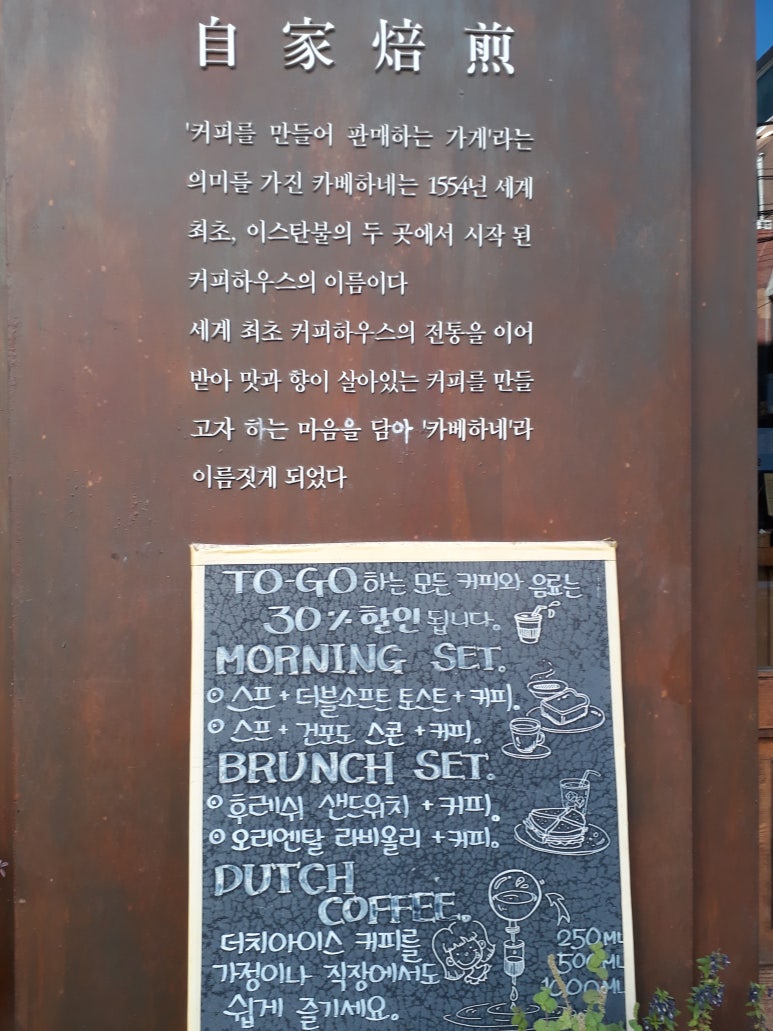 自家焙煎
'커피를 만들어 판매하는 가게'라는
의미를 가진 카베하네는 1554년 세계
최초, 이스탄불의 두 곳에서 시작 된
커피하우스의 이름이다
세계 최초 커피하우스의 전통을 이어
받아 맛과 향이 살아있는 커피를 만들
고자 하는 마음을 담아 '카베하네'라
이름짓게 되었다
TO-GO 하는 모든 커피와 음료는
30% 할인 됩니다.
MORNING SET.
스프 + 더블소프트 토스트 + 커피.
스프 + 건포도 스콘 + 커피.
BRUNCH SET.
후레쉬 샌드위치 + 커피.
오리엔탈 라비올리 + 커피.
DUTCH
COFFEE.
더치아이스 커피를
가정이나 직장에서도
쉽게 즐기세요.
250ML
500ML
1000ML